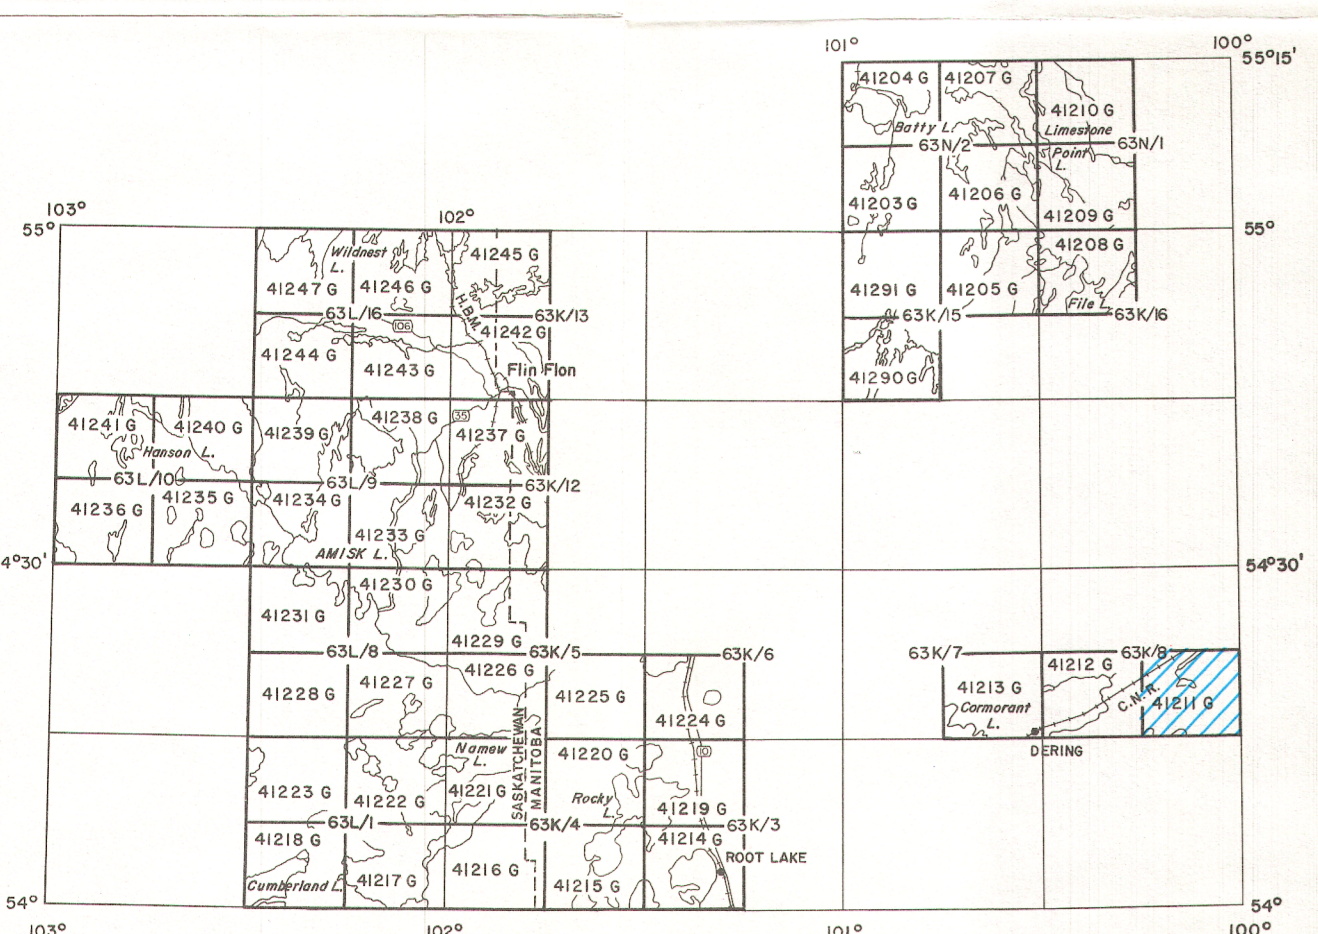 101°
100°
55°15'
41204 G
41207 G
41210 G
Batty L.
Limestone
63N/2
63N/1
Point
L.
41206 G
41203 G
41209 G
103°
102°
55°
55°
41208 G
Wildnest
L.
41245 G
41247 G
41246 G
41291 G
41205 G
File L.
H.B.M.
63L/16
63K/13
63K/15
63K/16
106
41242 G
41244 G
41243 G
Flin Flon
41290 G
41241 G
41240 G
41239 G
41238 G
35
41237 G
Hanson L.
63L/10
63L/9
63K/12
41236 G
41235 G
41234 G
41232 G
41233 G
AMISK L.
4°30'
54°30'
41230 G
41231 G
41229 G
63L/8
63K/5
63K/6
63K/7
63K/8
41226 G
41212 G
41228 G
41227 G
41225 G
41213 G
C.N.R.
41211 G
Cormorant
L.
41224 G
DERING
SASKATCHEWAN
MANITOBA
Namew
L.
41220 G
10
41223 G
41222 G
41221 G
Rocky
L.
41219 G
63L/1
63K/4
63K/3
41218 G
41214 G
ROOT LAKE
Cumberland L.
41217 G
41216 G
41215 G
54°
54°
103°
102°
101°
100°